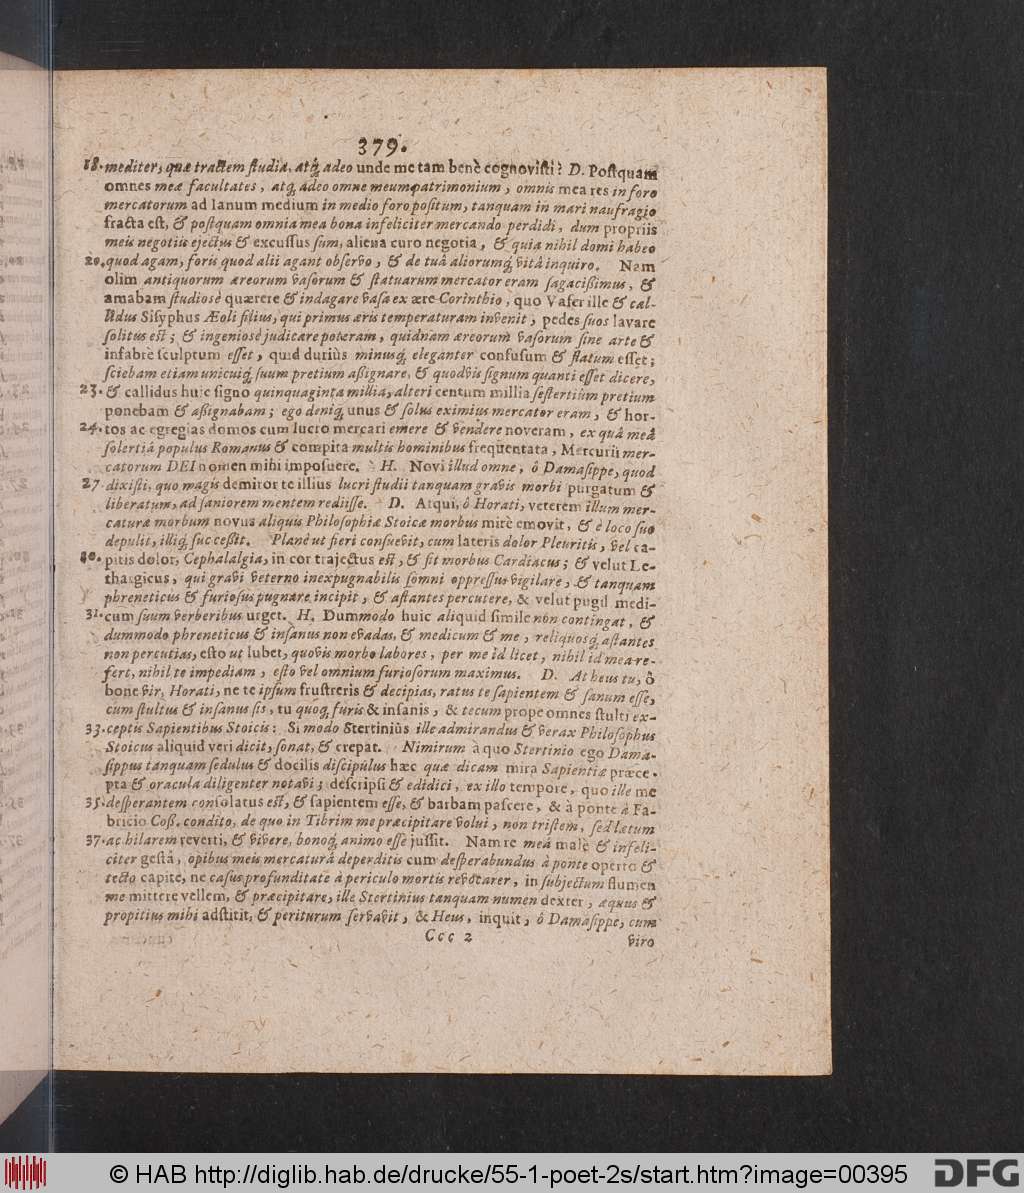 379.
18. mediter, quæ tractem studia, atq́; adeo unde me tam benè cognovisti? D. Postquam
omnes meæ facultates, atq́; adeo omne meum patrimonium, omnis mea res in foro
mercatorum ad Ianum medium in medio foro positum, tanquam in mari naufragio
fracta est, & postquam omnia mea bona infeliciter mercando perdidi, dum propriis
meis negotiis ejectus & excussus sum, aliena curo negotia, & quia nihil domi habeo
20. quod agam, foris quod alii agant observo, & de tuâ aliorumq́; vitâ inquiro. Nam
olim antiquorum æreorum vasorum & statuarum mercator eram sagacißimus, &
amabam studiosè quærere & indagare vasa ex ære Corinthio, quo Vafer ille & cal-
lidus Sisyphus Æoli filius, qui primus æris temperaturam invenit, pedes suos lavare
solitus est; & ingeniosè judicare poteram, quidnam æreorum vasorum sine arte &
infabrè sculptum esset, quid duriùs minusq́; eleganter confusum & flatum esset;
sciebam etiam unicuiq́; suum pretium aßignare, & quodvis signum quanti esset dicere,
23. & callidus huic signo quinquaginta millia, alteri centum millia sestertiûm pretium
ponebam & aßignabam; ego deniq́; unus & solus eximius mercator eram, & hor-
24. tos ac egregias domos cum lucro mercari emere & vendere noveram, ex quâ meâ
solertiâ populus Romanus & compita multis hominibus frequentata, Mercurii mer-
catorum DEI nomen mihi imposuere. H. Novi illud omne, ô Damasippe, quod
27 dixisti, quo magis demiror te illius lucri studii tanquam gravis morbi purgatum &
liberatum, ad saniorem mentem rediisse. D. Atqui, ô Horati, veterem illum mer-
caturæ morbum novus aliquis Philosophiæ Stoicæ morbus mirè emovit, & è loco suo
depulit, illiq́; successit. Planè ut fieri consuevit, cum lateris dolor Pleuritis, vel ca-
30. pitis dolor, Cephalalgia, in cor trajectus est, & fit morbus Cardiacus; & velut Le-
thargicus, qui gravi veterno inexpugnabilis somni oppressus vigilare, & tanquam
phreneticus & furiosus pugnare incipit, & astantes percutere, & velut pugil medi-
31. cum suum verberibus urget. H. Dummodo huic aliquid simile non contingat, &
dummodo phreneticus & insanus non evadas, & medicum & me, reliquosq́; astantes
non percutias, esto ut lubet, quovis morbo labores, per me id licet, nihil id mea re-
fert, nihil te impediam, esto vel omnium furiosorum maximus. D. At heus tu, ô
bone vir, Horati, ne te ipsum frustreris & decipias, ratus te sapientem & sanum esse,
cum stultus & insanus sis, tu quoq́; furis & insanis, & tecum prope omnes stulti ex-
33. ceptis Sapientibus Stoicis: Si modo Stertiniùs ille admirandus & verax Philosophus
Stoicus aliquid veri dicit, sonat, & crepat. Nimirum à quo Stertinio ego Dama-
sippus tanquam sedulus & docilis discipulus hæc quæ dicam mira Sapientiæ præce-
pta & oracula diligenter notavi; descripsi & edidici, ex illo tempore, quo ille me
35. desperantem consolatus est, & sapientem esse, & barbam pascere, & à ponte à Fa-
bricio Coß. condito, de quo in Tibrim me præcipitare volui, non tristem, sed lætum
37. ac hilarem reverti, & vivere, bonoq́; animo esse jussit. Nam re meâ malè & infeli-
citer gestâ, opibus meis mercaturâ deperditis cum desperabundus à ponte operto &
tecto capite, ne casus profunditate à periculo mortis revocarer, in subjectum flumen
me mittere vellem, & præcipitare, ille Stertinius tanquam numen dexter, æquus &
propitius mihi adstitit, & periturum servavit, & Heus, inquit, ô Damasippe, cum
Ccc 2 viro
© HAB http://diglib.hab.de/drucke/55-1-poet-2s/start.htm?image=00395
DFG